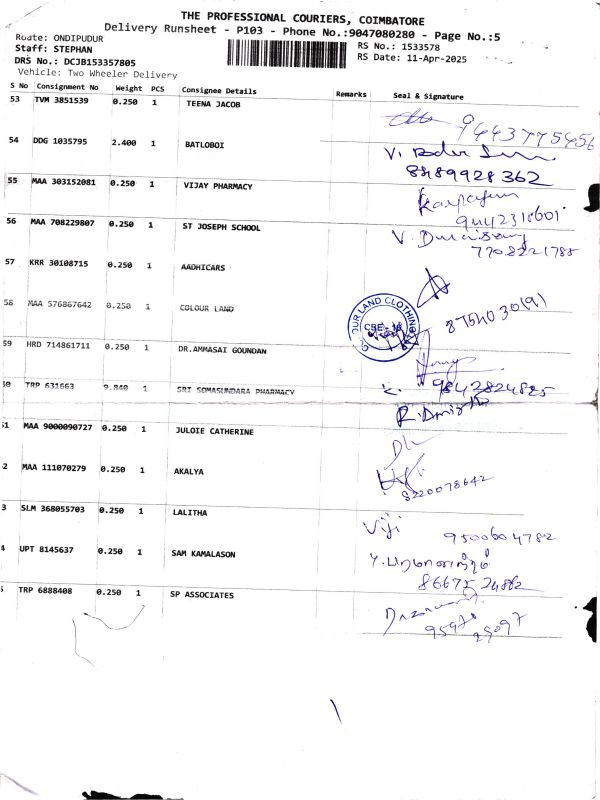 THE PROFESSIONAL COURIERS, COIMBATORE
Delivery Runsheet - P103 - Phone No.:9047080280 - Page No.:5
Route: ONDIPUDUR
Staff: STEPHAN
RS No.: 1533578
DRS No.: DCJB153357805
RS Date: 11-Apr-2025
Vehicle: Two Wheeler Delivery
S No Consignment No Weight PCS Consignee Details Remarks Seal & Signature
53 TVM 3851539 0.250 1 TEENA JACOB
9443775456
54 DDG 1035795 2.400 1 BATLOBOI
8489928362
55 MAA 303152081 0.250 1 VIJAY PHARMACY
9442310601
56 MAA 708229807 0.250 1 ST JOSEPH SCHOOL
7708221788
57 KRR 30108715 0.250 1 AADHICARS
58 MAA 576867642 0.250 1 COLOUR LAND
OUR LAND CLOTHING
CBE
59 HRD 714861711 0.250 1 DR.AMMASAI GOUNDAN
9842824825
TRP 631663 1 SRI SOMASUNDARA PHARMACY
MAA 9000090727 0.250 1 JULOIE CATHERINE
MAA 111070279 0.250 1 AKALYA
8220078642
SLM 368055703 0.250 1 LALITHA
Viji 9500604782
UPT 8145637 0.250 1 SAM KAMALASON
TRP 6888408 0.250 1 SP ASSOCIATES